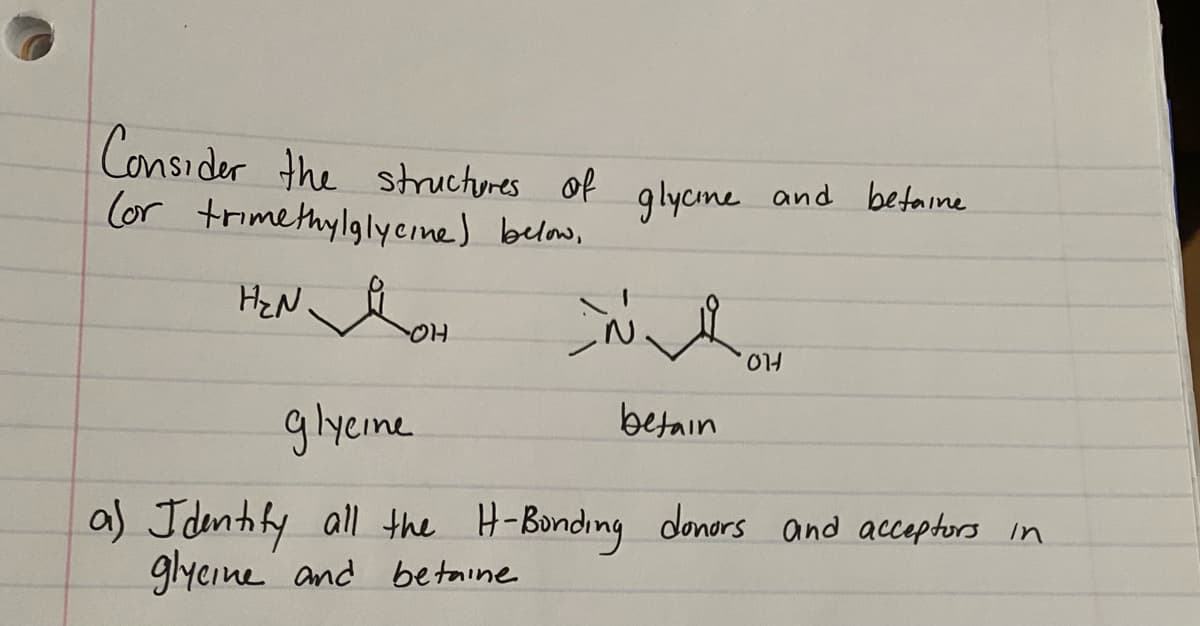 Consider the structures of glycine and betaine
(or trimethylglycine) below,
H₂N O OH N O OH
glycine betain
a) Identify all the H-Bonding donors and acceptors in
glycine and betaine